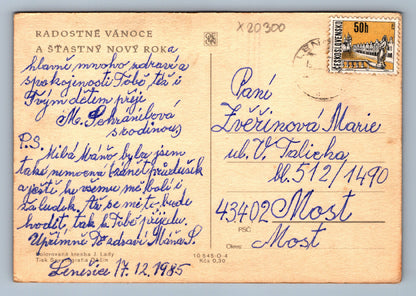 x20300
RADOSTNÉ VÁNOCE
A ŠŤASTNÝ NOVÝ ROKa
hlavně mnoho zdraví a
spokojenosti Tobě též i
Tvým dětem přeji
M. Schránilová
s rodinou
P.S.
Milá Mařo byla jsem
také nemocná zánět průdušek
a ještě ke všemu mě bolí i
žaludek, až se mi te bude
hodit, tak k Tobě přijedu.
Upřímně Tě zdraví Máňa S.
Kolorovaná kresba J. Lady
Tisk Děčín
Lenešice 17.12.1985
10 545 O-4
Kčs 0,30
LENE
50h
ČESKOSLOVENSKO
Paní
Zvěřinová Marie
ul. V. Talicha
bl. 512/1490
43402 Most
PSČ
Okres:
Most